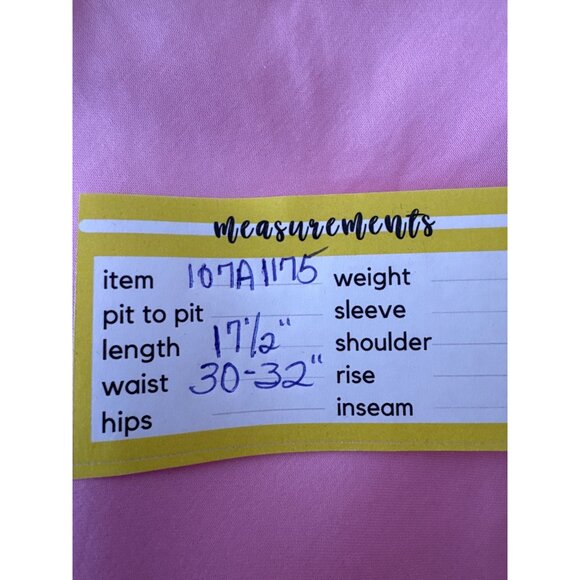 measurements
item 107A1175 weight
pit to pit sleeve
length 17 1/2" shoulder
waist 30-32" rise
hips inseam